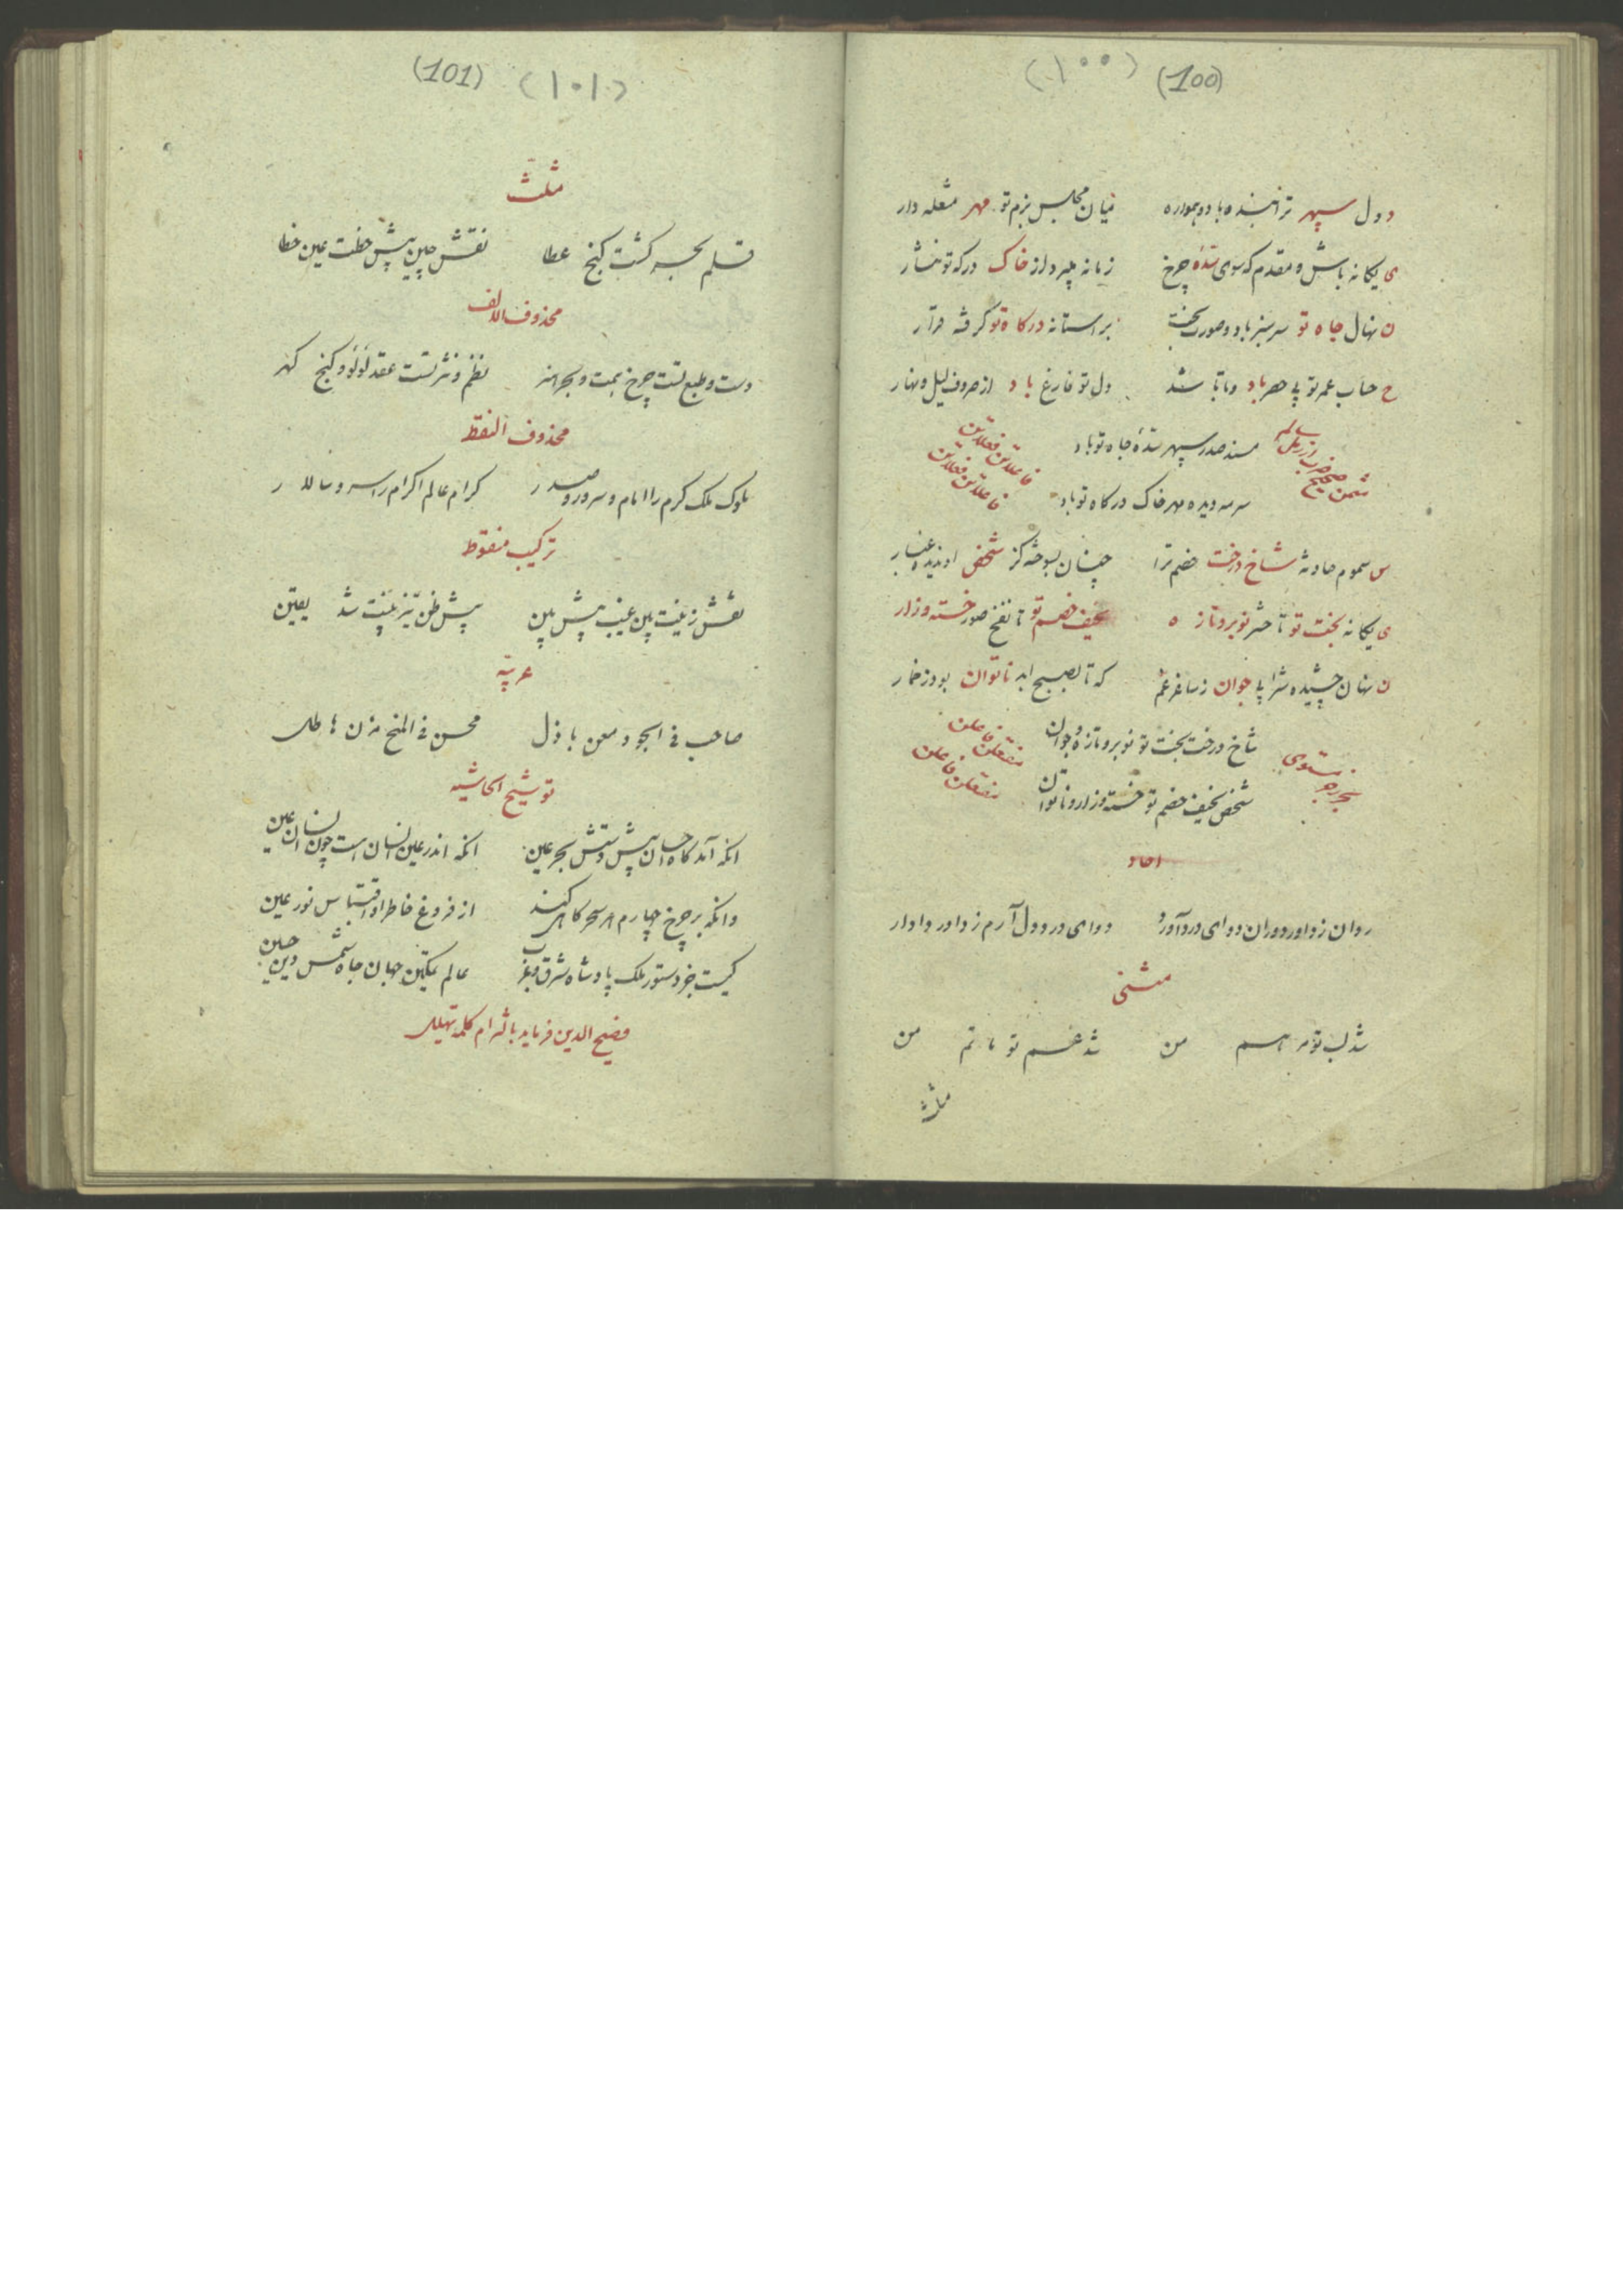 (۱۰۰) (100)
دول سپهر ترا بنده باد و همواره میان مجلس بزم تو مهر مشعله دار
ی یکانه باش و مقدم که سوی سده چرخ زمانه میبرد از خاک درکه تو نثار
ن نهال جاه تو سرسبز باد و صورت بخت بر استانه درکاه تو گرفته قرار
ح حساب عمر تو بی حصر باد و تا باشد دل تو فارغ باد از صروف لیل و نهار
مسند صدر سپهر سده جاه تو باد
فاعلاتن فعلاتن
سرمه دیده مهر خاک درکاه تو باد
فاعلاتن فعلاتن
س سموم حادثه شاخ درخت خصم ترا چنان بسوخته کز شخص او ندیده غبار
ی یکانه بخت تو تا حشر نوبر و تازه نحیف خصم تو تا نفخ صور خسته و زار
ن نهان چشیده شرابی جوان ز ساغر غم که تا بصبح ابد ناتوان بود ز خمار
شاخ درخت بخت تو نوبر و تازه و جوان
مفتعلن فاعلن
شخص نحیف خصم تو خسته و زار و ناتوان
مفتعلن فاعلن
احاد
روان ز داور دوران دوای درد آورد دوای درد دل آرم ز داور دادار
مثنی
شد لب تو مرهم من شد غم تو ماتم من
مثلث
(101) (۱۰۱)
مثلث
قلم بحر کشت کنج عطا نقش چین پیش خطت عین خطا
محذوف الالف
دست و طبع تست چرخ همت و بحر هنر نظم و نثر تست عقد لؤلؤ و کنج کهر
محذوف النقط
ملوک ملک کرم را امام و سرور و صدر کرام عالم اکرام را سر و سالار
ترکیب منقوط
نقش زینت بین غیب پیش بین پیش ظن تیز بینت شد یقین
عربیه
صاحب فی الجود معن باذل محسن فی المنح مزن هاطل
توشیح الحاشیه
انکه آمد کاه احسان پیش دستش بحر عین انکه اندر عین انسان است چون انسان عین
وانکه بر چرخ چهارم هر سحر کاهر کند از فروغ خاطر او اقتباس نور عین
کیست جز دستور ملک پادشاه شرق و غرب عالم تمکین جهان جاه شمس دین حسین
فصیح الدین فرماید بالتزام کلمه تهلیل